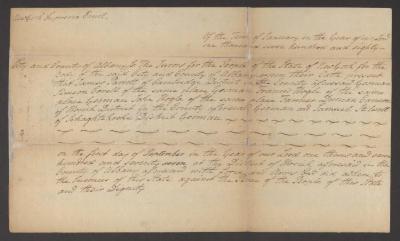 New York Supreme Court.
Of the Term of January in the Year of our Lord
one thousand seven hundred and eighty
City and County of Albany ss The Jurors for the People of the State of New York for the
body of the said City and County of Albany upon their Oath present
that James Parrott of Cambridge District in the County aforesaid Yeoman
Simeon Covell of the same place Yeoman Francis Hogle of the same
place Yeoman John Hogle of the same place Yeoman
of Hosick District in the County aforesaid Yeoman and Samuel
of Schaghtekoke District Yeoman
on the first day of September in the Year of our Lord one thousand seven
hundred and seventy seven at the District of Hosick aforesaid in the
County of Albany aforesaid with Force and Arms &c did adhere to
the Enemies of this State against the Peace of the People of this State
and their Dignity